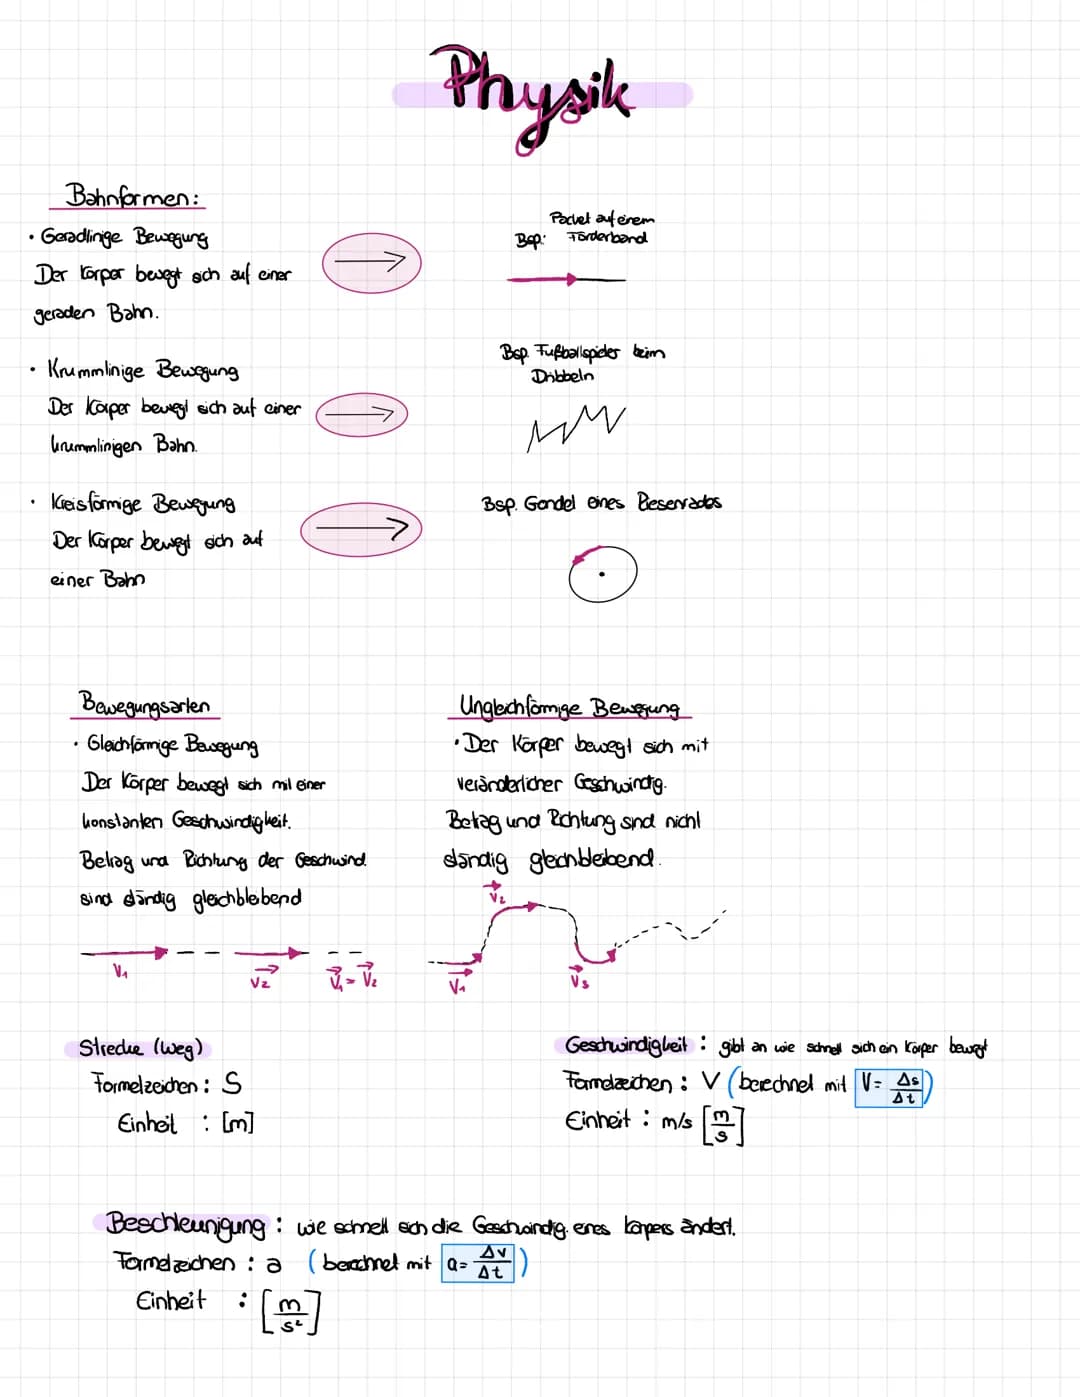 Physik
Bahnformen:
• Geradlinige Bewegung
Der Körper bewegt sich auf einer
geraden Bahn.
Bsp: Packet auf einem
Förderband
• Krummlinige Bewegung
Der Körper bewegt sich auf einer
krummlinigen Bahn.
Bsp. Fußballspieler beim
Dribbeln
• Kreisförmige Bewegung
Der Körper bewegt sich auf
einer Bahn
Bsp. Gondel eines Riesenrades
Bewegungsarten
• Gleichförmige Bewegung
Der Körper bewegt sich mit einer
konstanten Geschwindigkeit.
Betrag und Richtung der Geschwind.
sind ständig gleichbleibend
V₁ V₂ V₁ = V₂
Ungleichförmige Bewegung
• Der Körper bewegt sich mit
veränderlicher Geschwindig.
Betrag und Richtung sind nicht
ständig gleichbleibend.
V₂
V₁ V₃
Strecke (Weg)
Formelzeichen: S
Einheit : [m]
Geschwindigkeit : gibt an wie schnell sich ein Körper bewegt
Formelzeichen : V (berechnet mit V = Δs/Δt)
Einheit : m/s [m/s]
Beschleunigung : wie schnell sich die Geschwindig. eines körpers ändert.
Formelzeichen : a (berechnet mit a = Δv/Δt)
Einheit : [m/s²]